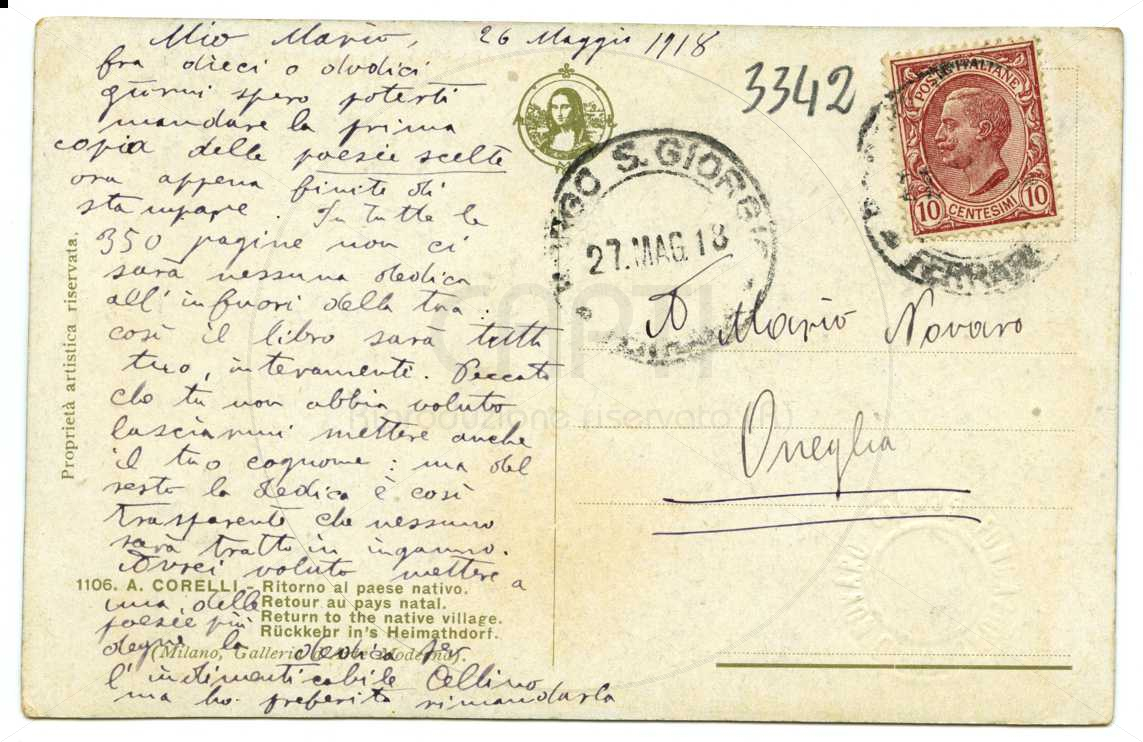 Mio Mario, 26 Maggio 1918
fra dieci o dodici
giorni spero poterti
mandare la prima
copia delle poesie scelte
ora appena finite di
stampare. In tutte le
350 pagine non ci
sarà nessuna dedica
all'infuori della tua:
così il libro sarà tutto
tuo, interamente. Peccato
che tu non abbia voluto
lasciarmi mettere anche
il tuo cognome: ma del
resto la dedica è così
trasparente che nessuno
sarà tratto in inganno.
Avrei voluto mettere a
una delle
poesie più
degne la dedica per
l'indimenticabile Cellino
ma ho preferito rimandarla
Proprietà artistica riservata.
1106. A. CORELLI - Ritorno al paese nativo.
Retour au pays natal.
Return to the native village.
Rückkehr in's Heimathdorf.
(Milano, Galleria d'Arte Moderna).
3342
POSTE ITALIANE
10 CENTESIMI 10
BORGO S. GIORGIO
27.MAG.18
FERRARA
A Mario Novaro
Oneglia
CAPTI
Riproduzione riservata (R)